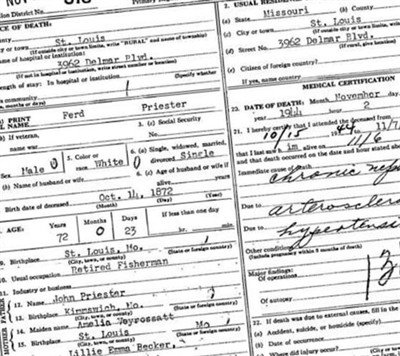 NOV
tion District No.
Primary
County
(c) City or town St. Louis
(If outside city or town limits, write "RURAL" and name of township)
Name of hospital or institution:
3962 Delmar Blvd.
(If not in hospital or institution, write street number or location)
Length of stay: In hospital or institution
(Specify whether
community
years, months or days)
PRINT
FULL NAME Ferd Priester
(b) If veteran, 3. (c) Social Security
name was No.
Sex Male 5. Color or race White 6. (a) Single, widowed, married, divorced Single
(b) Name of husband or wife 6. (c) Age of husband or wife if
alive years
Birth date of deceased Oct. 14, 1872
(Month) (Day) (Year)
AGE: Years Months Days If less than one day
72 0 23 hr. min.
9. Birthplace St. Louis, Mo.
(City, town, or county) (State or foreign country)
10. Usual occupation Retired Fisherman
11. Industry or business
12. Name John Priester
13. Birthplace Kimmswich, Mo.
(City, town, or county) (State or foreign country)
14. Maiden name Amelia Veyrossatt
15. St. Louis Mo
(City, town, or county) (State or foreign country)
Lillie Emma Becker,
FATHER
MOTHER
2. USUAL RESIDENCE
(a) State Missouri (b) County
(c) City or town St. Louis
(If outside city or town limits, write
(d) Street No. 3962 Delmar Blvd.
(If rural, give location)
(e) Citizen of foreign country?
If yes, name country
MEDICAL CERTIFICATION
20. DATE OF DEATH: Month November day
year 1944 hour 2
21. I hereby certify that I attended the deceased from
10/15 1944 to 11/7
that I last saw him alive on 11/6
and that death occurred on the date and hour stated above
Immediate cause of
chronic
Due to
Due to hypertension
Other conditions
(Include pregnancy within 3 months of death)
Major findings:
Of operations
Of autopsy
22. If death was due to external causes, fill in the
(a) Accident, suicide, or homicide (specify)
(b) Date of occurrence
(c) Where did injury occur?